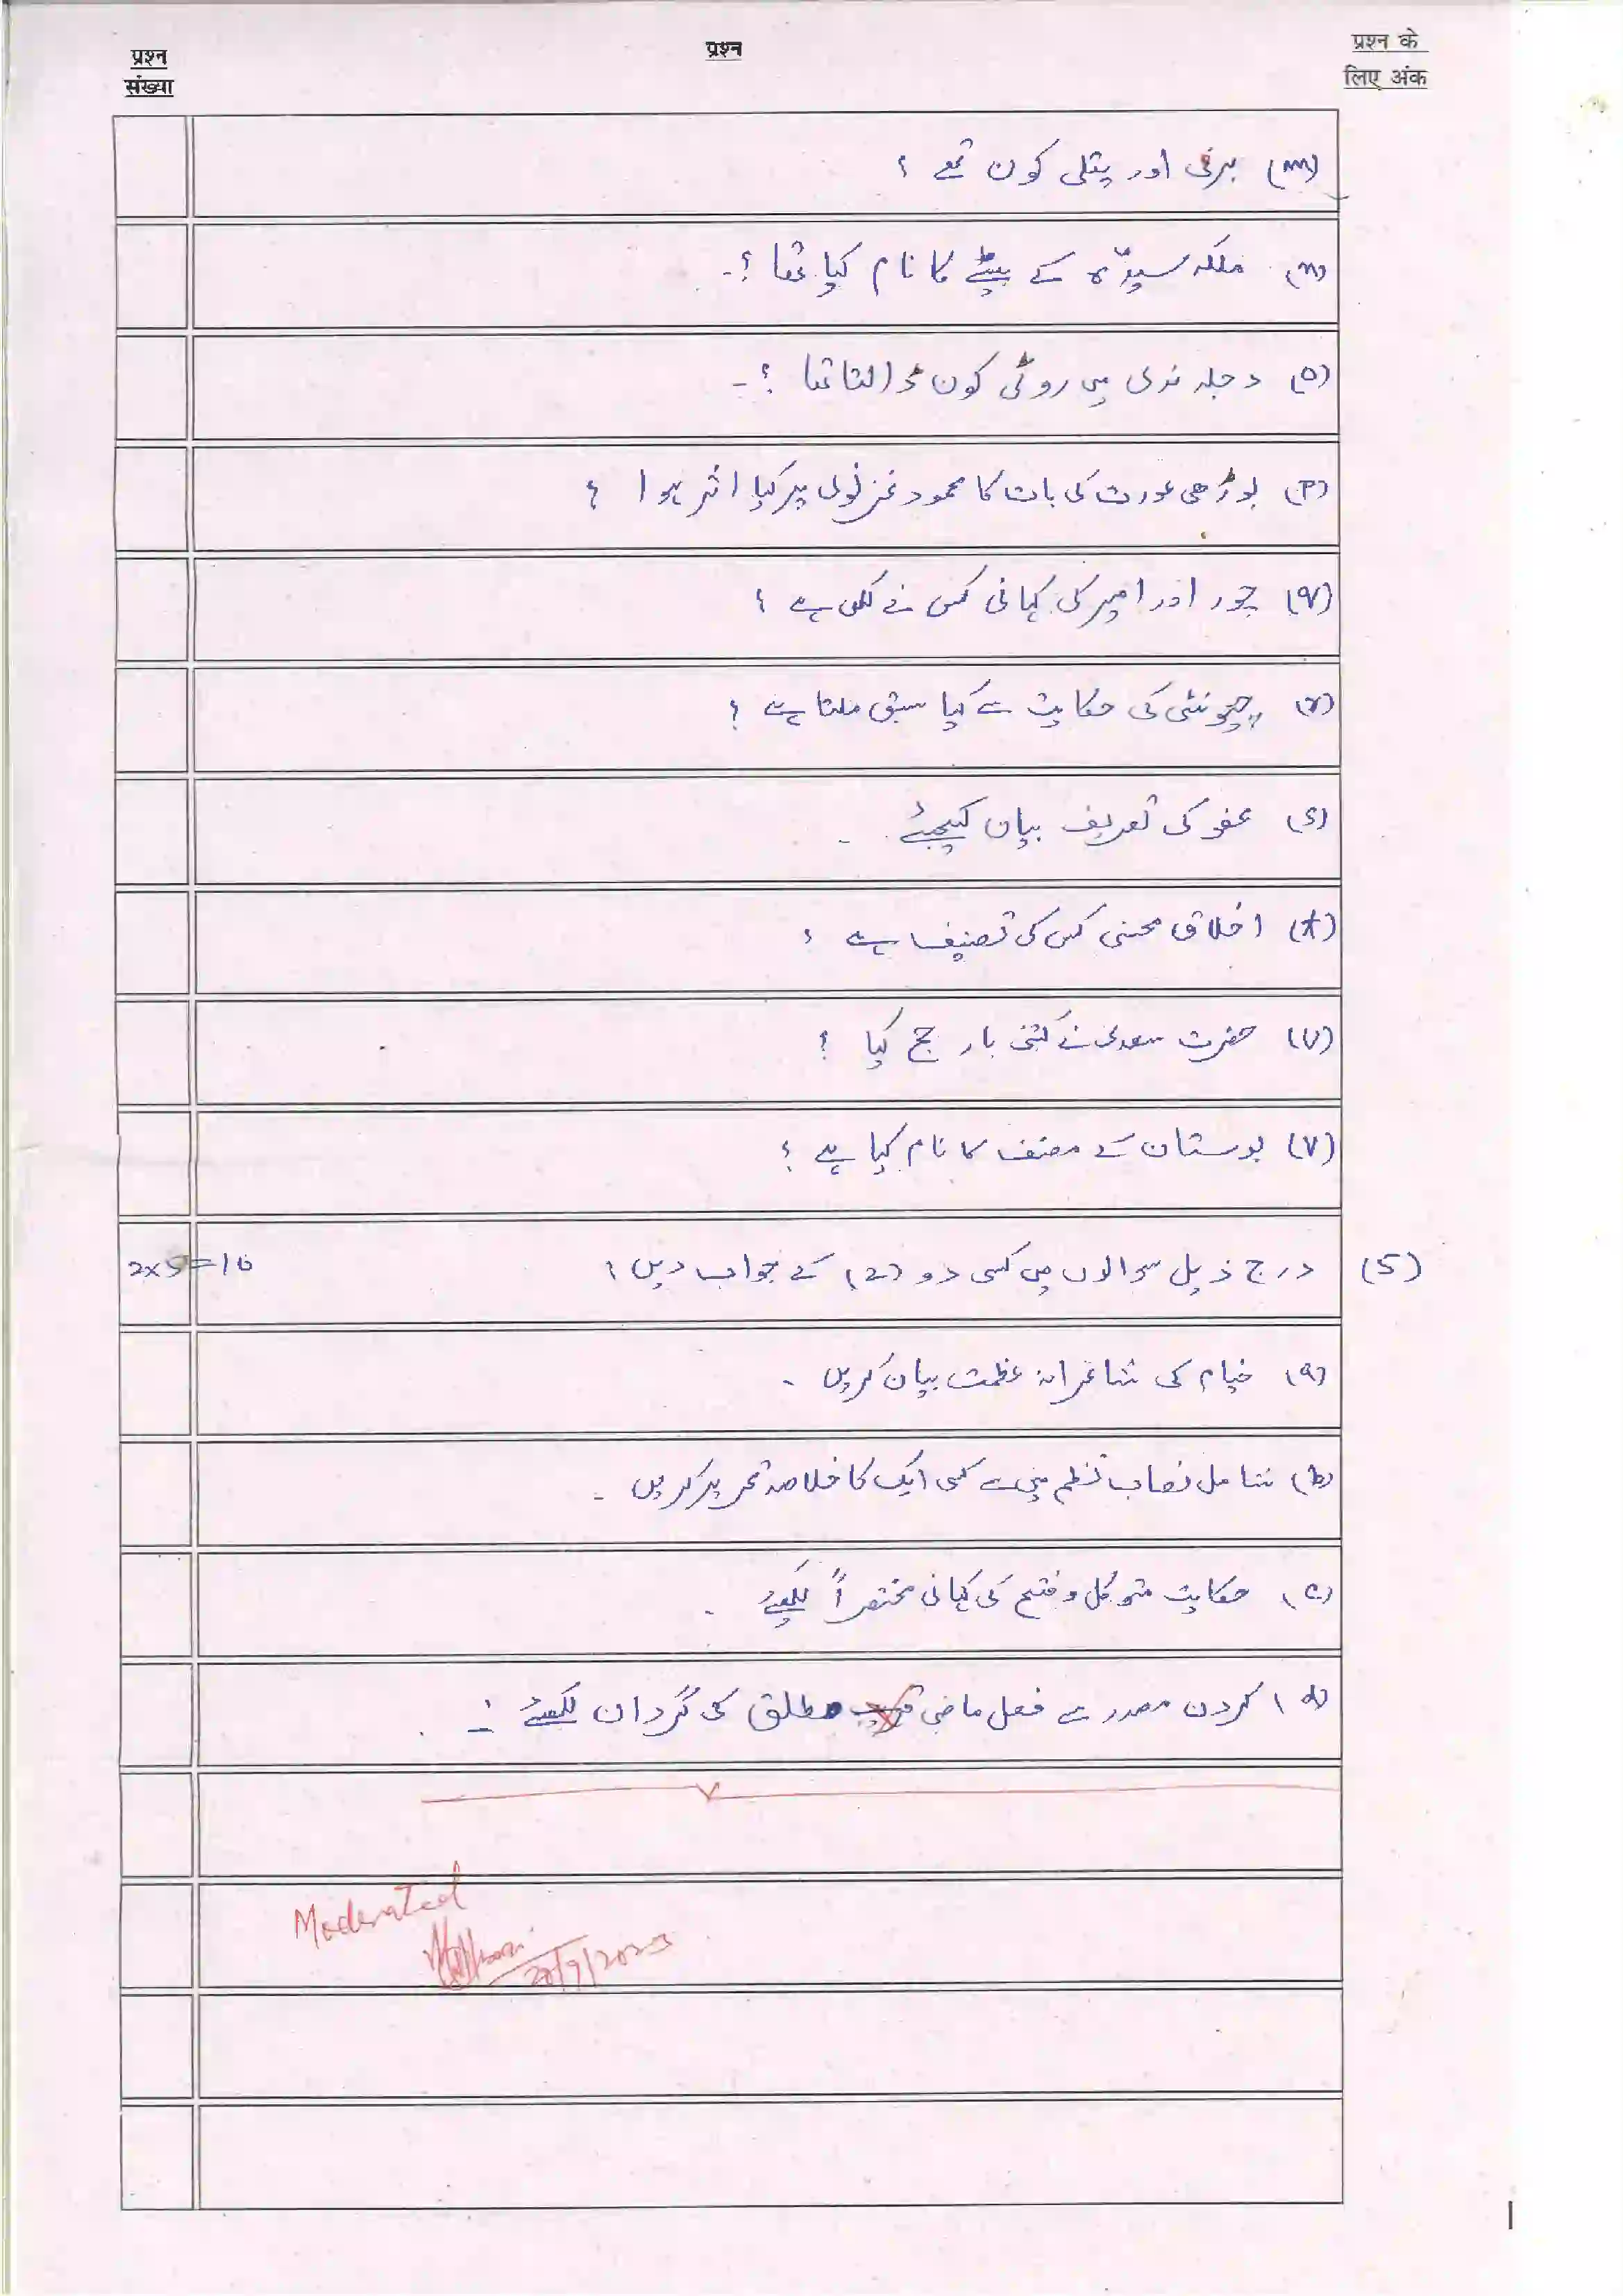 प्रश्न संख्या
प्रश्न
प्रश्न के लिए अंक
(m) برفی اور پتلی کون تھے ؟
(n) ملکہ سیدہ کے بیٹے کا نام کیا تھا ؟-
(o) دجلہ ندی میں روٹی کون ڈالتا تھا ؟-
(p) بوڑھی عورت کی بات کا محمود غزنوی پر کیا اثر ہوا ؟
(q) چور اور امیر کی کہانی کس نے لکھی ہے ؟
(r) چیونٹی کی حکایت سے کیا سبق ملتا ہے ؟
(s) عفو کی تعریف بیان کیجئے -
(t) اخلاق محسنی کس کی تصنیف ہے ؟
(u) حضرت سعدی نے کتنی بار حج کیا ؟
(v) بوستان کے مصنف کا نام کیا ہے ؟
(5) درج ذیل سوالوں میں کسی دو (2) کے جواب دیں ؛ 2x5=10
(a) خیام کی شاعرانہ عظمت بیان کریں -
(b) شامل نصاب نظم میں سے کسی ایک کا خلاصہ تحریر کریں -
(c) حکایت متوکل و فتح کی کہانی مختصراً لکھئے -
(d) کردن مصدر سے فعل ماضی مطلق کی گردان لکھئے :-
Moderated
20/9/2023